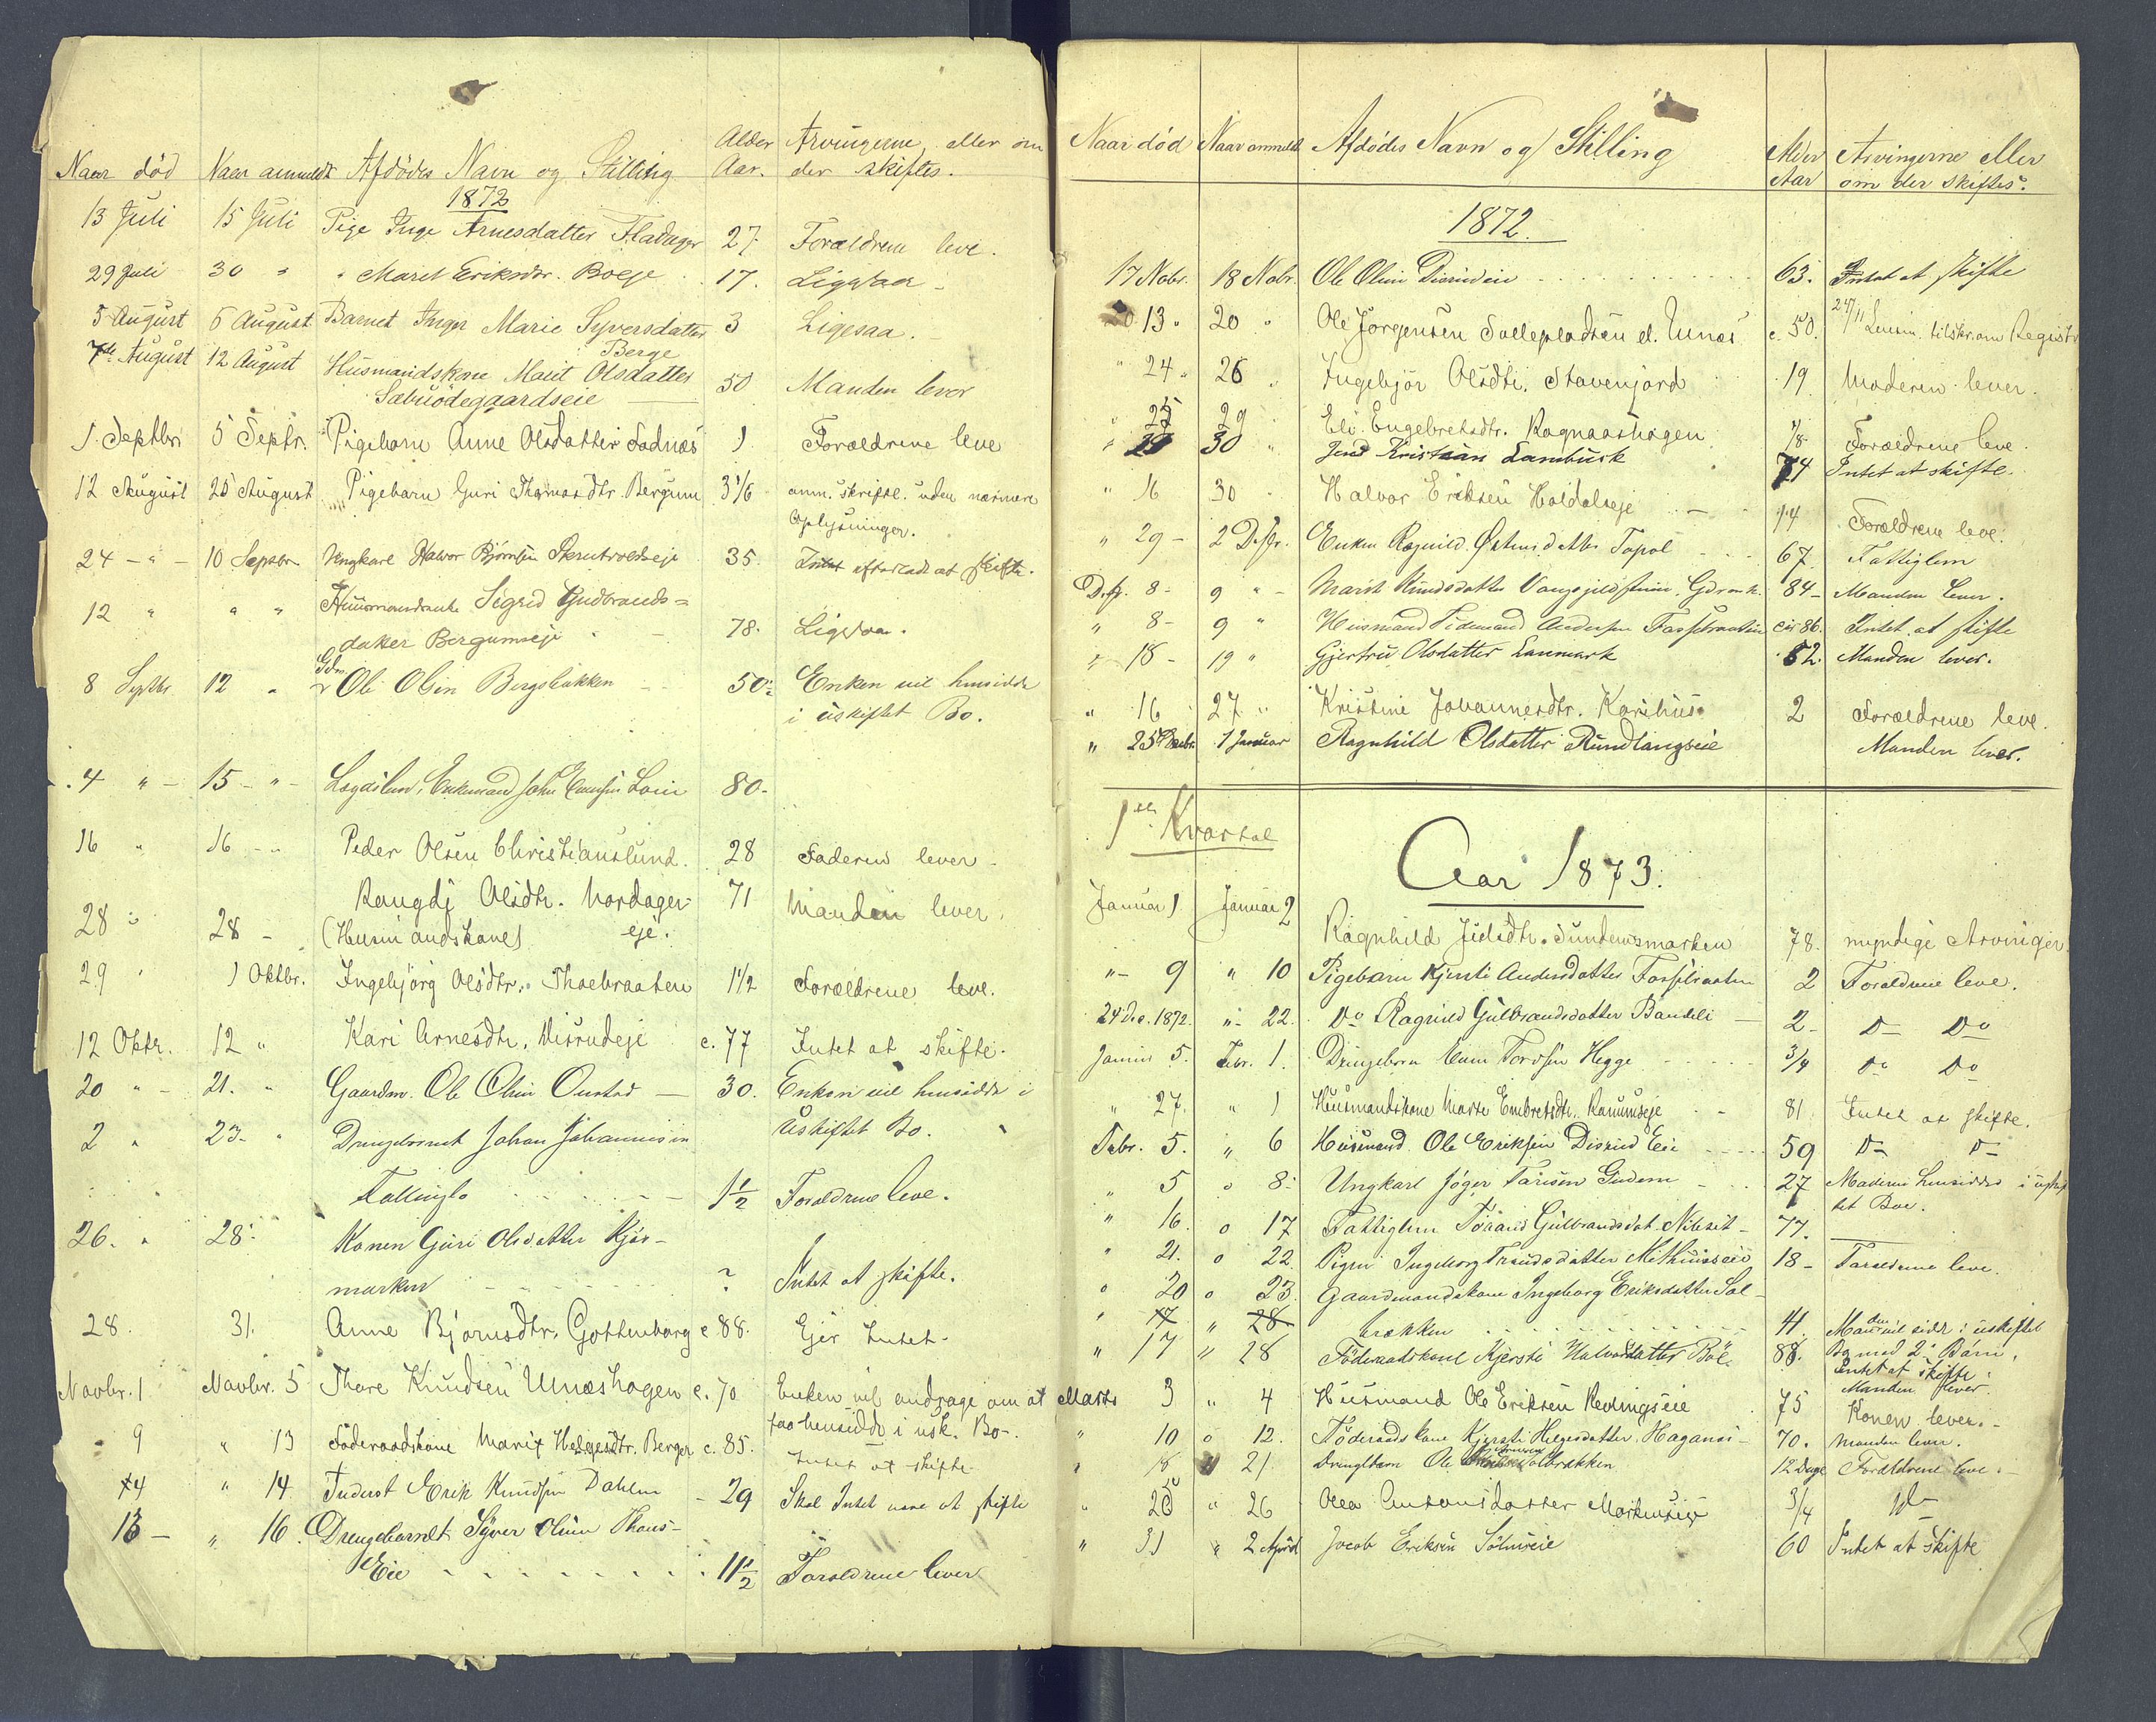 Naar død Naar anmeldt Afdødes Navn og Stilling Alder Aar. Arvingerne eller om der skiftes.
1872
13 Juli 15 Juli Pige Inge Arnesdatter Fladager 27 Forældrene leve.
29 Juli 30 " " Marit Eriksdtr. Boeje 17. Ligesaa
5 August 6 August Barnet Inger Marie Syversdatter 3 Ligesaa.
Berge
7de August 12 August Husmandskone Marit Olsdatter 50 Manden lever
Sæbuødegaardseie
1 Septbr. 5 Septr. Pigebarn Anne Olsdatter Fadnæs 1 Forældrene leve
12 August 25 August Pigebarn Guri Thomasdtr. Bergum 3 1/6 anm. skriftl. uden nærmere
Oplysninger.
24 - " - 10 Septbr. Ungkarl Halvor Bjørnsen 35. Intet efterladt at skifte.
12 " " " Huusmandsenke Sigrid Gudbrands=
datter Bergumseje 78. Ligesaa.
8 Septbr 12 " Gdm. Ole Olsen Bergsbakken 50 Enken vil hensidde
i uskiftet Bo.
4 " - 15 - " - Lægdslem, Enkemand John 80.
16 " 16 - " Peder Olsen Christianslund. 28 Faderen lever -
Rangdi Olsdtr. Nordager- 71 Manden lever.
28 " 28 - (Husmandskone) eje.
29 " 1 Oktbr. Ingebjørg Olsdtr. Thoebraaten 1 1/2 Forældrene leve.
12 Oktr. 12 " Kari Arnesdtr. Disrudeje c. 77 Intet at skifte.
20 " - 21. " Gaardm. Ole Olsen Onstad 30. Enken vil hensidde i
2 " 23. " Drengebarnet Johan Johannesen Uskiftet Bo.
1 1/2 Forældrene leve.
26. " 28. Konen Guri Olsdatter Kjøs-
marken ? Intet at skifte.
28. 31. Anne Bjørnsdtr. Gottenborg c 88. Ejer Intet.
Novbr. 1 Novbr. 5 Thore Knudsen Unæshagen c. 70 Enken vil andrage om at
faa hensidde i usk. Bo-.
" 9 " 13 Føderaadskone Marit Helgesdtr. Berger c. 85. Intet at skifte
14 " 14 Erik Knudsen Dahlen - 29 Skal Intet være at skifte
13 - " 16. Drengebarnet Syver Olsen Thons-
Eie 11 1/2 Forældrene lever
Naar død Naar anmeldt Afdødes Navn og Stilling Alder Aar Arvingerne eller om der skiftes.
1872.
17 Nobr. 18 Nobr. Ole Olsen Disrudeie 63. Intet at skifte
13 " 20 " Ole Jørgensen Solleplodsen el. Unæs c. 50. 27/11 Lensm. tilskr. om Registr
" 24 " 26 " Ingebjør Olsdtr. Stavenjord 19 Moderen lever.
" 25 29 Eli Engebretsdtr. Ragnaashagen 7/8 Forældrene leve
" 29 30 " Jens Kristian Lambusk 74 Intet at skifte.
" 16 30 " Halvor Eriksen Holdalseje 14 Forældrene leve.
" 29 - 2 Dsbr. Enken Ragnild Østensdatter Topol 67. Fattiglem
Dsbr. 8 - 9 " - Marit Knudsdatter Gdmk. 84 - Manden lever.
" 8 - 9 " Husmand Tidemand Andersen Fossbraaten cir 86. Intet at skifte
" 18 - 19 " Gjertru Olsdatter Lanmark 52. Manden lever.
" 16 27 " Kristine Johannesdtr. Karihus. 2 Forældrene leve.
" 25 Decbr. 1 Januar Ragnhild Olsdatter Rundtangseie Manden lever.
1ste Kvartal
Aar 1873.
Januar 1 Januar 2 Ragnhild Juelsdtr. Sundemsmarken 78. myndige Arvinger
" - 9 " 10 Pigebarn Kjersti Andersdatter Fossbraaten 2 Forældrene leve.
24 Dec. 1872. " - 22. Do Ragnild Gulbrandsdatter Bandeli 2 - Do Do
Januar 5. Febr. 1. Drengebarn Hegge 3/4 Do Do
" 27. " 1 Huusmandskone Marte Embretsdtr. Ranumseje 81 Intet at skifte.
Febr. 5. " 6 Husmand Ole Eriksen Disrud Eie 59 Do Do
" 5 " 8. Ungkarl Gudem 27 Moderen hensidder i uskif
tet Boe.
" 16. " 17 Fattiglem Gulbrandsdat. 77.
" 21. " 22. Pigen Ingeborg Mithusseie 18 - Forældrene leve.
" 20 " 23. Gaardmandskone Ingeborg Eriksdatter Sol-
" 17 " 28 brækken 41. Manden vil sidde i uskiftet
" 17 " 28 Føderaadskone Kjersti Halvorsdatter Böe 88. Bo med 2 Børn.
Intet at skifte.
Manden lever.
Marts 3 " 4 Husmand Ole Eriksen Revlingseie 75 Konen lever. -
" 10 " 12. Føderaadskone Kjersti Helgesdatter Hagansi- 70. Manden lever.
" 18 " 21 Drengebarn Ole Solbrækken 12 Dage Forældrene leve. -
" 20 " 26 Olea Antonsdatter 3/4 Do
" 31 " 2 April Jocob Eriksen Sölnseie 60 Intet at skifte